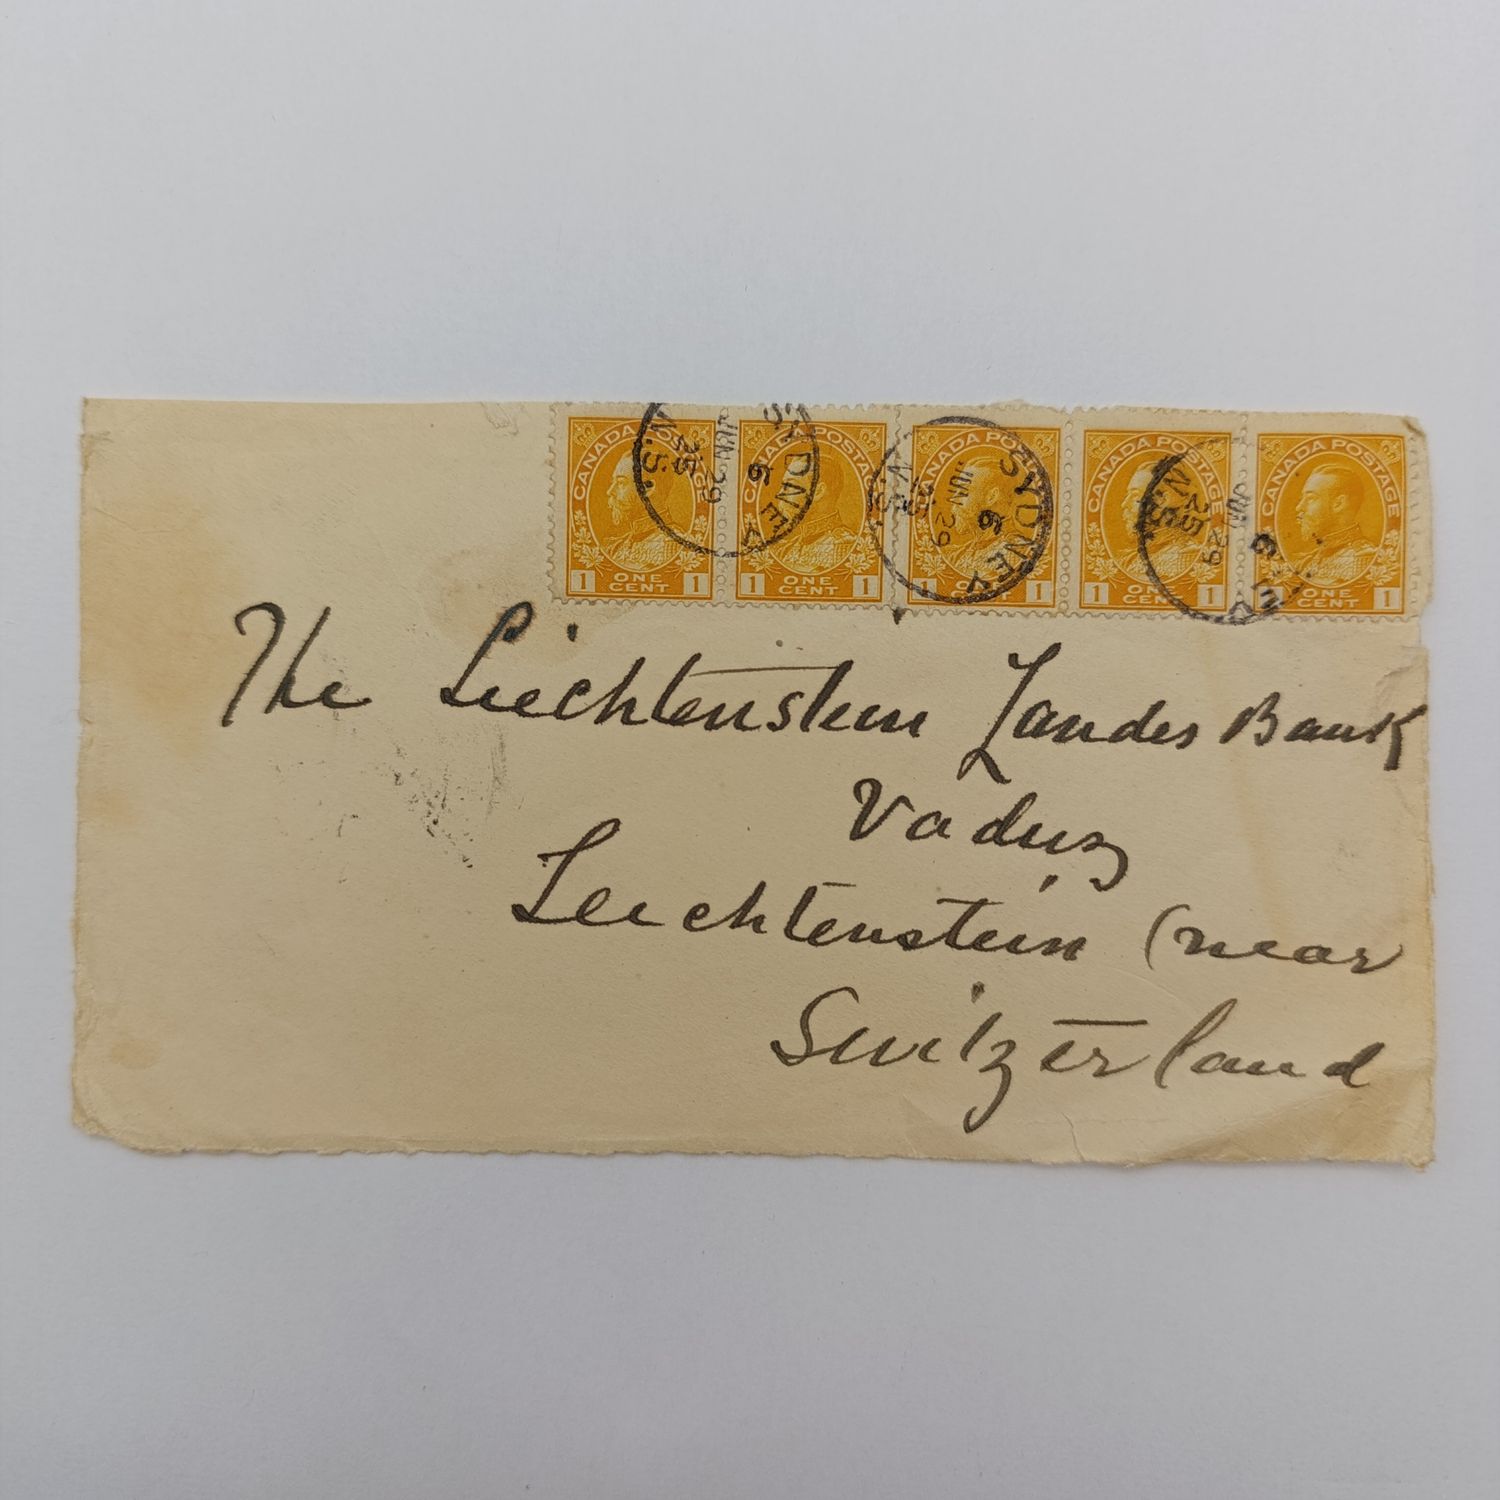 CANADA POSTAGE CANADA POSTAGE CANADA POSTAGE CANADA POSTAGE CANADA POSTAGE
1 ONE CENT 1 1 ONE CENT 1 1 ONE CENT 1 1 ONE CENT 1 1 ONE CENT 1
SYDNEY 6 JUN 29 25 N.S.
SYDNEY 6 JUN 29 25 N.S.
SYDNEY 6 JUN 29 25 N.S.
The Liechtenstein Landes Bank
Vaduz
Liechtenstein (near
Switzerland